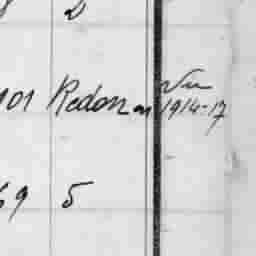 2
101 Redon
Vu
1914-17
69 5